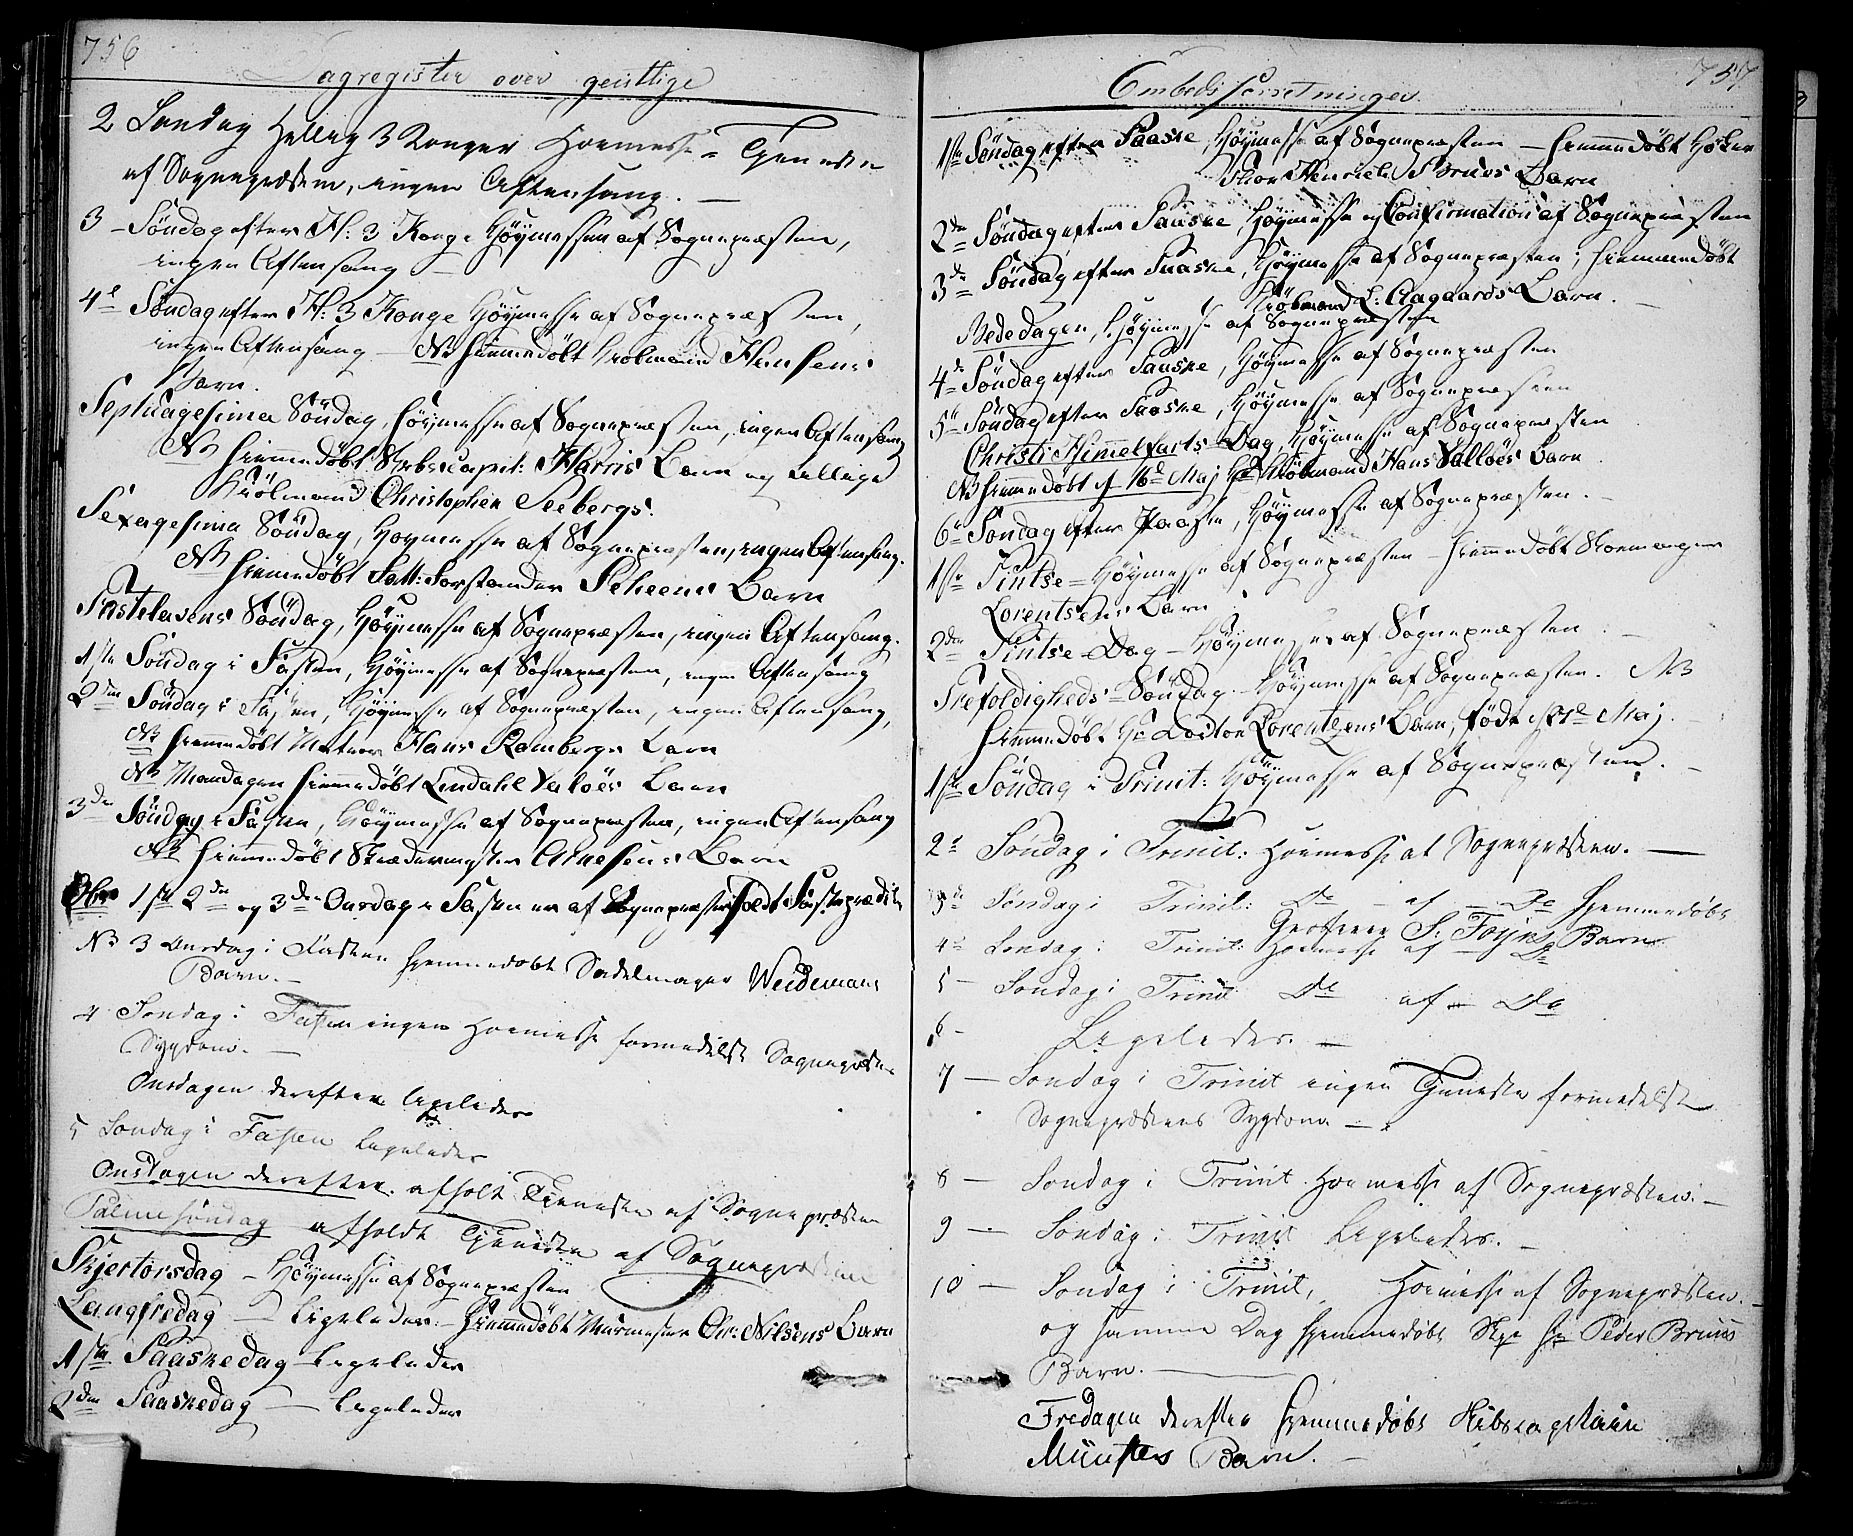 756
Dagregister over geistlige
2 Søndag Hellig 3 Konger Høimesse - Tjeneste
af Sognepræsten, ingen Aftensang. —
3 – Søndag efter H: 3 Konge Høymesse af Sognepræsten,
ingen Aftensang —
4de Søndag efter H: 3 Konge Høymesse af Sognepræsten,
ingen Aftensang — NB hiemmedøbt Kiøbmand Hansens
Barn.
Septuagesima Søndag, Høymesse af Sognepræsten, ingen Aftensang
NB hiemmedøbt Skibscapit: Harris Barn og tillige
Kiøbmand Christopher Seebergs.
Sexagesima Søndag, Høymesse af Sognepræsten, ingen Aftensang.
NB hiemmedøbt Fatt: Forstander Scheens Barn
Fastelavens Søndag, Høymesse af Sognepræsten, ingen Aftensang.
1ste Søndag i Fasten, Høymesse af Sognepræsten, ingen Aftensang
2den Søndag i Fasten, Høymesse af Sognepræsten, ingen Aftensang,
NB hiemmedøbt Matros Hans Rambergs Barn
NB Mandagen hiemmedøbt Lindahl Valöes Barn
3den Søndag i Fasten, Høymesse af Sognepræsten, ingen Aftensang
NB hiemmedøbt Skrædermester Arnesens Barn
1ste 2den og 3die Onsdag i Fasten er af Sognepræsten holdt Fasteprædik
NB 3 Onsdag i Fasten hjemmedøbt Sadelmager Weidemans
Barn. —
4 Søndag i Fasten ingen Høimesse formedelst Sognepræstens
Sygdom. —
Onsdagen derefter ligeledes
5 Søndag i Fasten ligeledes
Onsdagen derefter afholdt Tjeneste af Sognepræsten
Palmesøndag afholdt Tjeneste af Sognepræsten
Skjertorsdag – Høymesse af Sognepræsten
Langfredag — ligeledes – hiemmedøbt Murmester Chr: Nilsens Barn
1ste Paaskedag – ligeledes
2den Paaskedag — ligeledes
757
Embedsforretninger.
1ste Søndag efter Paaske, Høymesse af Sognepræsten — hiemmedøbt Høker
Thor Henrich Barn
2den Søndag efter Paaske, Høymesse og Confirmation af Sognepræsten
3de Søndag efter Paaske, Høymesse af Sognepræsten; hiemmedøbt
Kiøbmand L: Aagaards Barn. —
Bededagen, Høymesse af Sognepræsten
4de Søndag efter Paaske, Høymesse af Sognepræsten
5te Søndag efter Paaske, Høymesse af Sognepræsten
Christi Himmelfarts-Dag, Høymesse af Sognepræsten
NB hiemmedøbt d 16de Maj Hr Kiøbmand Hans Valløes Barn
6te Søndag efter Paaske, Høymesse af Sognepræsten. —
1ste Pintse – Høymesse af Sognepræsten – hiemmedøbt Skomager
Lorentsens Barn
2den Pintse-Dag – Høymesse af Sognepræsten
Trefoldigheds-Søndag – Høymesse af Sognepræsten. NB
hiemmedøbt Hr Doctor Lorentzens Barn, født Maj.
1ste Søndag i Trinit: Høymesse af Sognepræsten. —
2de Søndag i Trinit: Høimesse af Sognepræsten. —
3de Søndag i Trinit: Do – af – Do Hjemmedøbt
S: Foyns Barn
4de Søndag i Trinit: Høimesse af Do
5 – Søndag i Trinit Do af – Do
6 – Ligeledes. —
7 — Søndag i Trinit ingen Tjeneste formedelst
Sognepræstens Sygdom —.
8 — Søndag i Trinit. Høimesse af Sognepræsten. —
9 — Søndag i Trinit Ligeledes. —
10 — Søndag i Trinit, Høimesse af Sognepræsten. —
og samme Dag hjemmedøbt Peder Bruns
Barn. —
Fredagen derefter hjemmedøbt Skibscaptain
Münsters Barn. —